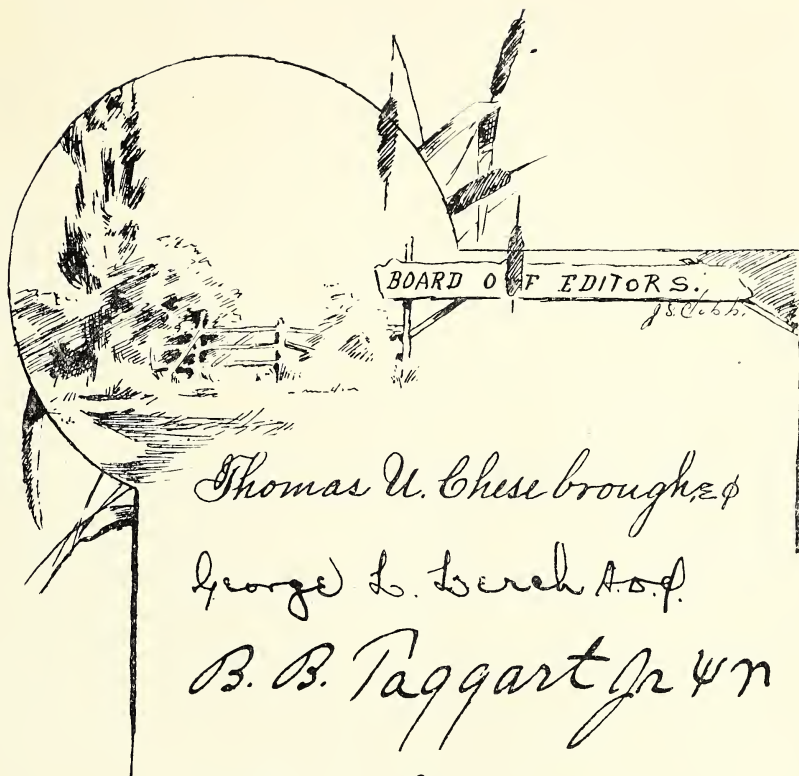 BOARD OF EDITORS.
J.S. Cobb.
Thomas U. Chesebrough, Σ Φ
George L. Lerch A.Δ.Φ.
B. B. Taggart Jr Ψ Υ